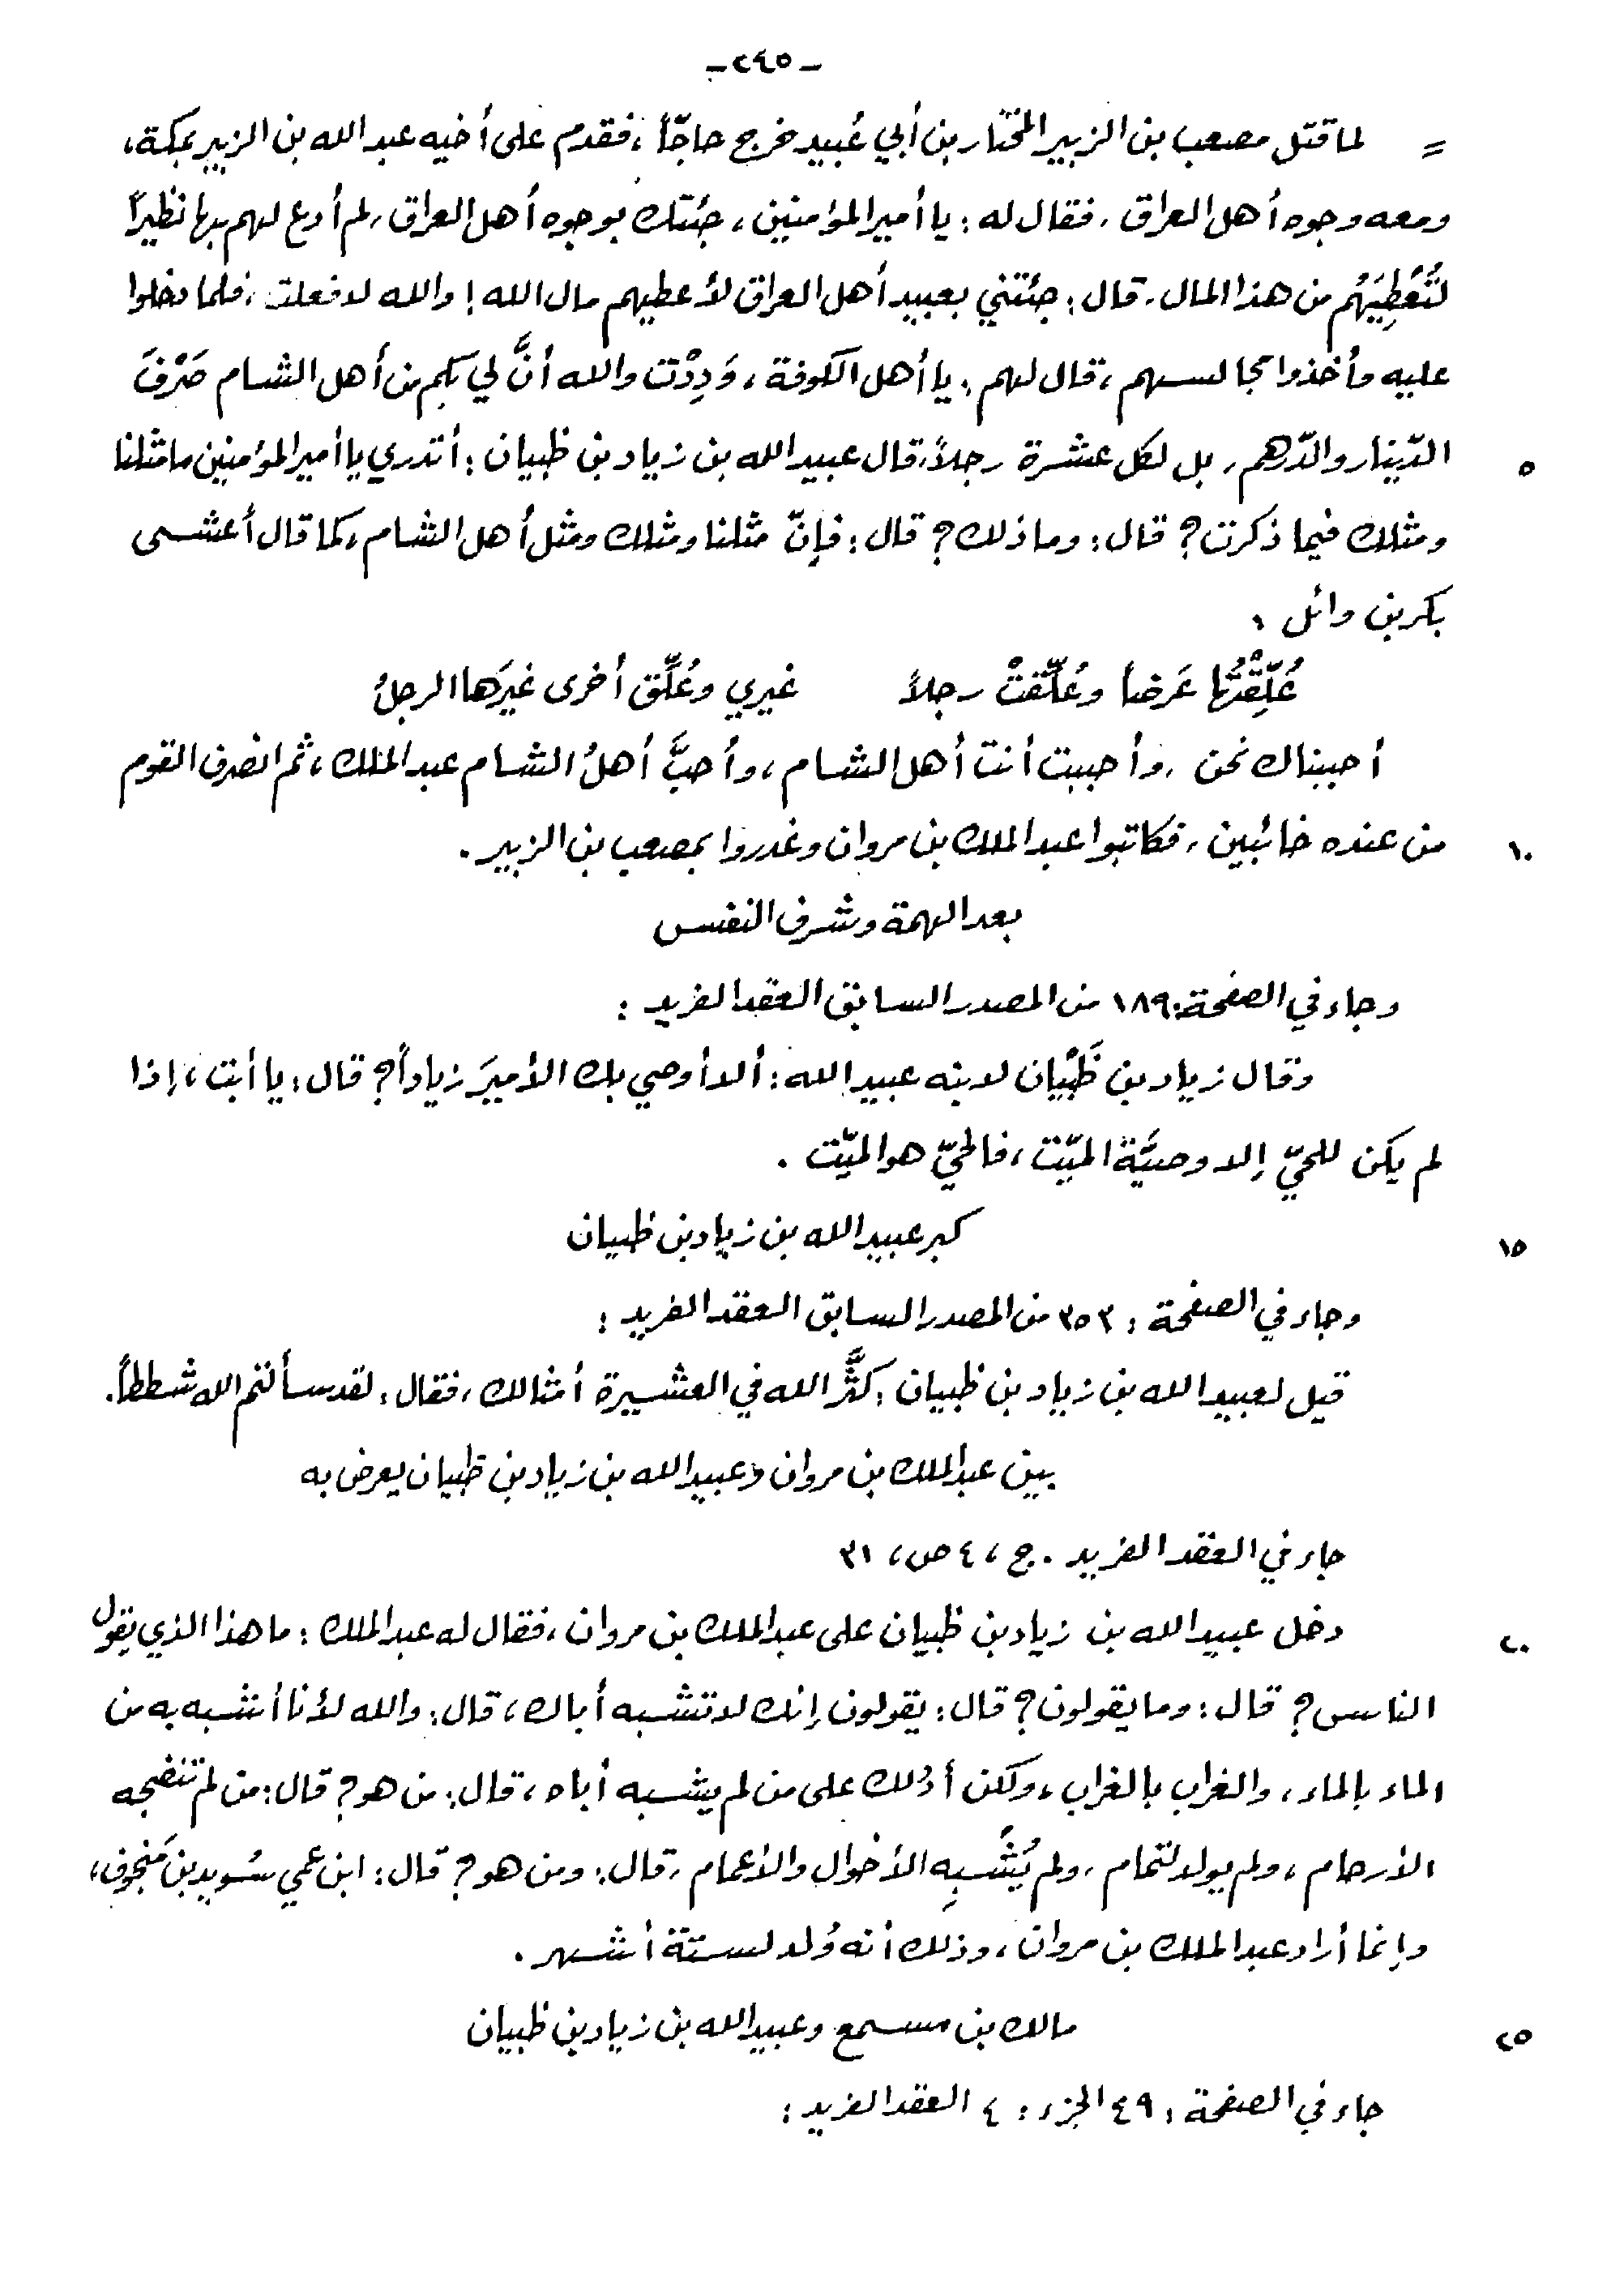 -٢٤٥-
= لما قتل مصعب بن الزبير المختار بن أبي عُبيد خرج حاجّاً، فقدم على أخيه عبد الله بن الزبير بمكة،
ومعه وجوه أهل العراق، فقال له: يا أمير المؤمنين، جئتك بوجوه أهل العراق، لم أدع لهم بها نظيراً
لتُعْطِيَهُم من هذا المال، قال: جئتني بعبيد أهل العراق لأعطيهم مال الله! والله لا فعلت، فلما دخلوا
عليه وأخذوا مجالسهم، قال لهم: يا أهل الكوفة، وَدِدْت والله أنَّ لي بكم من أهل الشام صَرْفَ
٥ الدّينار والدّرهم، بل لكل عشرة رجلاً، قال عبيد الله بن زياد بن ظبيان: أتدري يا أمير المؤمنين ما مثلنا
ومثلك فيما ذكرت؟ قال: وما ذلك؟ قال: فإنّ مثلنا ومثلك ومثل أهل الشام، كما قال أعشى
بكر بن وائل:
عُلِّقْتُها عَرضاً وعُلِّقتْ رجلاً غيري وعُلِّق أخرى غيرَها الرجلُ
أحببناك نحن، وأحببت أنت أهل الشام، وأحبَّ أهلُ الشام عبد الملك، ثم انصرف القوم
١٠ من عنده خائبين، فكاتبوا عبد الملك بن مروان وغدروا بمصعب بن الزبير.
بعد الهمة وشرف النفس
وجاء في الصفحة: ١٨٩ من المصدر السابق العقد الفريد:
وقال زياد بن ظَبْيَان لابنه عبيد الله: ألا أوصي بك الأميرَ زياداً؟ قال: يا أبت، إذا
لم يكن للحيّ إلا وصيَّة الميّت، فالحيّ هو الميّت.
١٥ كبر عبيد الله بن زياد بن ظبيان
وجاء في الصفحة: ٣٥٣ من المصدر السابق العقد الفريد:
قيل لعبيد الله بن زياد بن ظبيان: كثَّر الله في العشيرة أمثالك، فقال: لقد سألتم الله شططاً.
بين عبد الملك بن مروان وعبيد الله بن زياد بن ظبيان يعرض به
جاء في العقد الفريد. ج، ٤ ص، ٣١
٢٠ دخل عبيد الله بن زياد بن ظبيان على عبد الملك بن مروان، فقال له عبد الملك: ما هذا الذي يقول
الناس؟ قال: وما يقولون؟ قال: يقولون إنك لا تشبه أباك، قال: والله لأنا أشبه به من
الماء بالماء، والغراب بالغراب، ولكن أدُلك على من لم يشبه أباه، قال: من هو؟ قال: من لم تنضجه
الأرحام، ولم يولد لتمام، ولم يُشْبِهِ الأخوال والأعمام، قال: ومن هو؟ قال: ابن عمي سُويد بن مَنجوف،
وإنما أراد عبد الملك بن مروان، وذلك أنه وُلد لستة أشهر.
٢٥ مالك بن مسمع وعبيد الله بن زياد بن ظبيان
جاء في الصفحة: ٤٩ الجزء: ٤ العقد الفريد: